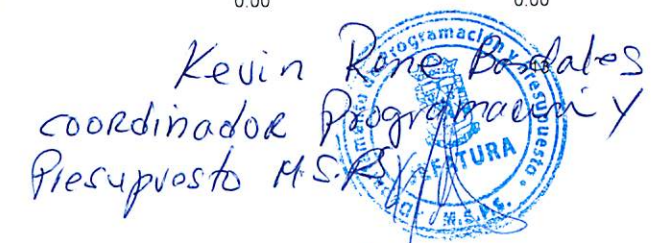 0.00 0.00
Kevin Rone Bardales
coordinador Programación y
Presupuesto M.S.P.S
Programación y Presupuesto
JEFATURA
M.S.P.S.